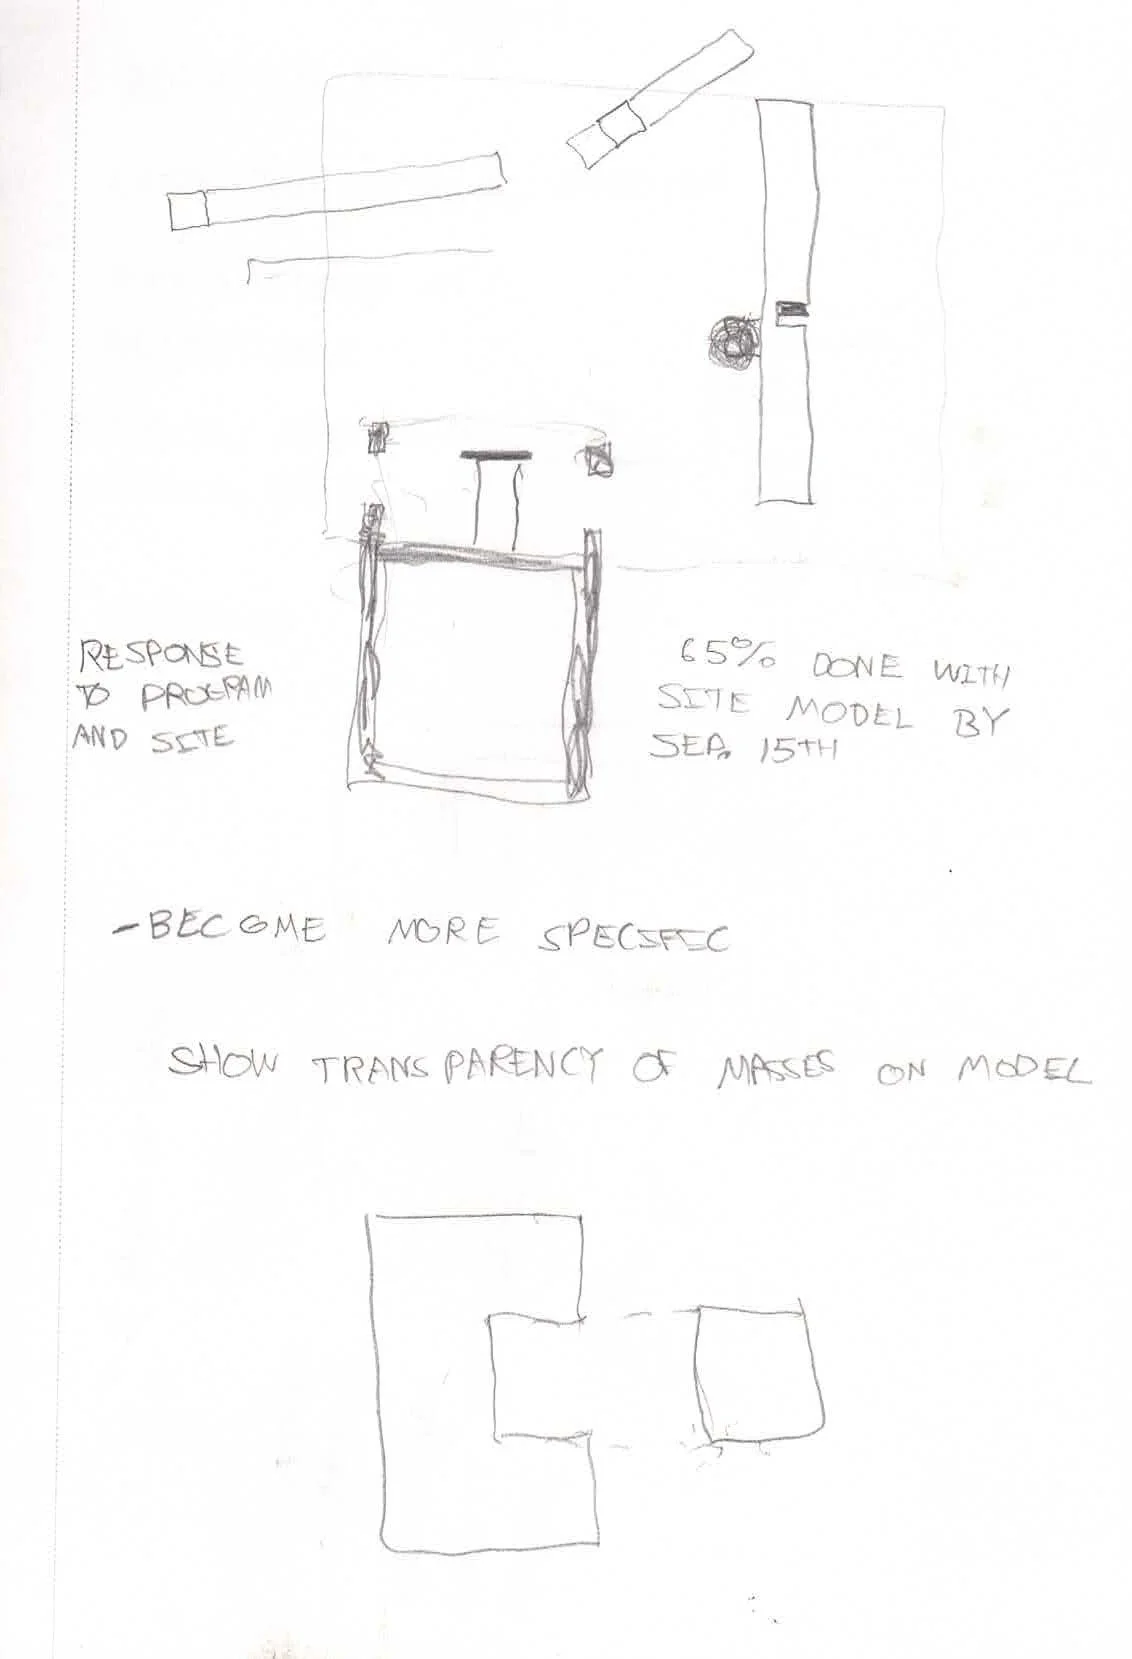 RESPONSE
TO PROGRAM
AND SITE
65% DONE WITH
SITE MODEL BY
SEP. 15TH
-BECOME MORE SPECIFIC
SHOW TRANSPARENCY OF MASSES ON MODEL